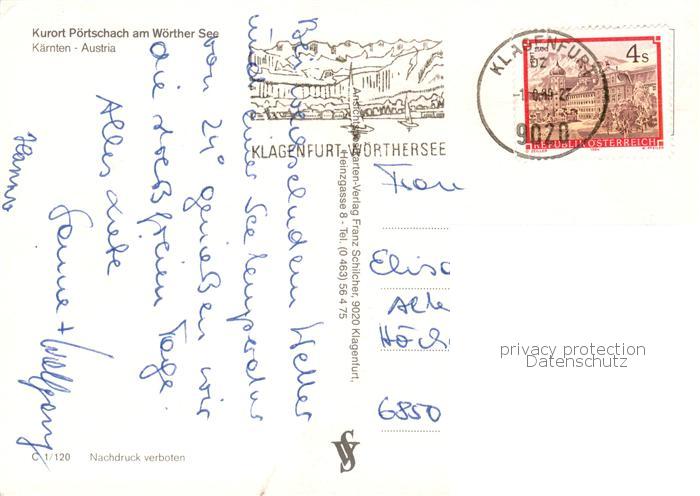 Kurort Pörtschach am Wörther See
Kärnten - Austria
Bei wechselndem Wetter
und einer Seetemperatur
von 24° genießen wir
die stressfreien Tage.
Alles Liebe
Hanna
+ Wolfgang
C 1/120 Nachdruck verboten
Ansichtskarten-Verlag Franz Schilcher, 9020 Klagenfurt,
Heinzgasse 8 - Tel. (0 463) 56 4 75
KLAGENFURT-WÖRTHERSEE
KLAGENFURT
9020
4 S
REPUBLIK ÖSTERREICH
Frau
Elisa
Alte
Höch
6850
privacy protection
Datenschutz